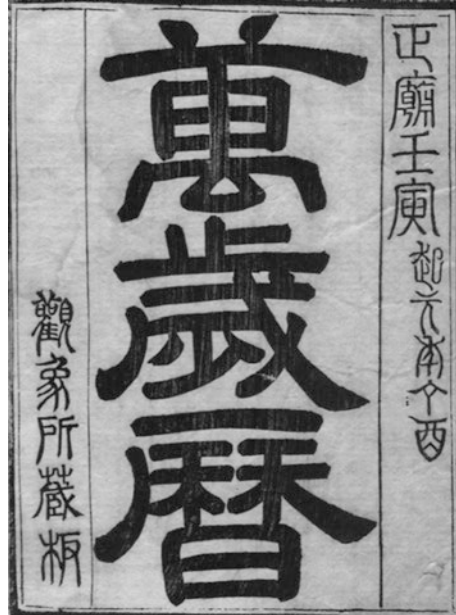 正廟壬寅起元年丁酉
萬歲曆
觀象所藏板